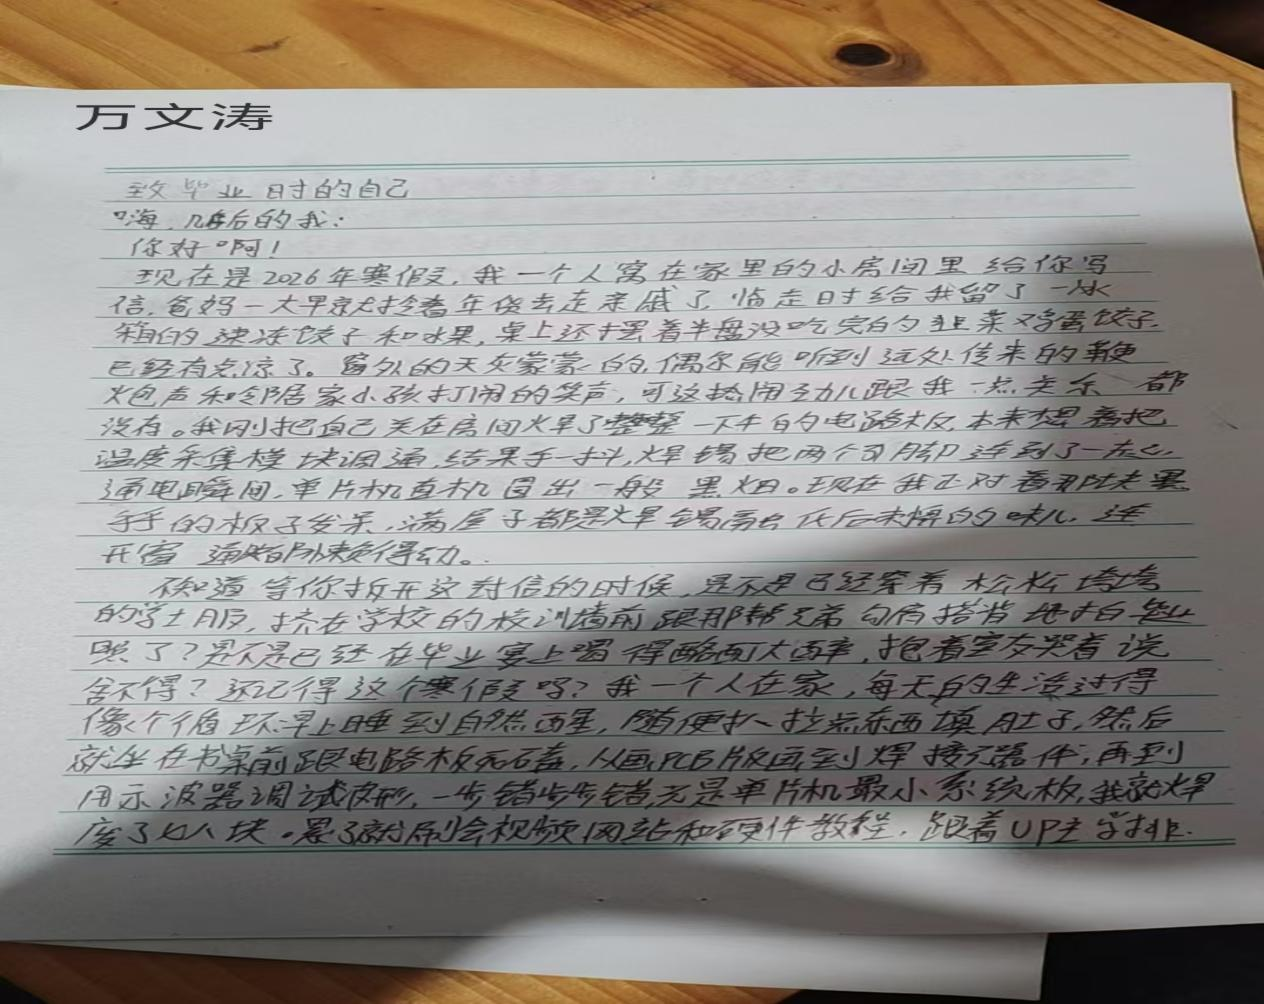 万文涛
致毕业时的自己
嗨,几年后的我:
你好啊!
现在是2026年寒假,我一个人窝在家里的小房间里给你写
信,爸妈一大早就拎着年货去走亲戚了,临走时给我留了一冰
箱的速冻饺子和水果,桌上还摆着半盘没吃完的韭菜鸡蛋饺子,
已经有点凉了。窗外的天灰蒙蒙的,偶尔能听到远处传来的鞭
炮声和邻居家小孩打闹的笑声,可这热闹劲儿跟我一点关系都
没有。我刚把自己关在房间焊了整整一下午的电路板,本来想着把
温度采集模块调通,结果手一抖,焊锡把两个引脚连到了一起,
通电瞬间,单片机直接冒出一股黑烟。现在我正对着那块黑
的板子发呆,满屋子都是焊锡高后的味儿,连
开窗通都懒得动。
不知道等你拆开这封信的时候,是不是已经穿着松松垮垮
的学士服,挤在学校的校训墙前跟那帮兄弟勾肩搭背地拍毕业
照了?是不是已经在毕业宴上喝得酩酊大醉,抱着室友哭着说
舍不得?还记得这个寒假吗?我一个人在家,每天的生活过得
像个循环:早上睡到自然醒,随便扒拉点东西填肚子,然后
就坐在书桌前跟电路板死磕,从画PCB版画到焊接元器件,再到
用示波器调试波形,一步错步步错,光是单片机最小系统板,我就焊
废了七八块。累了就刷会视频网站和硬件教程,跟着UP主学排